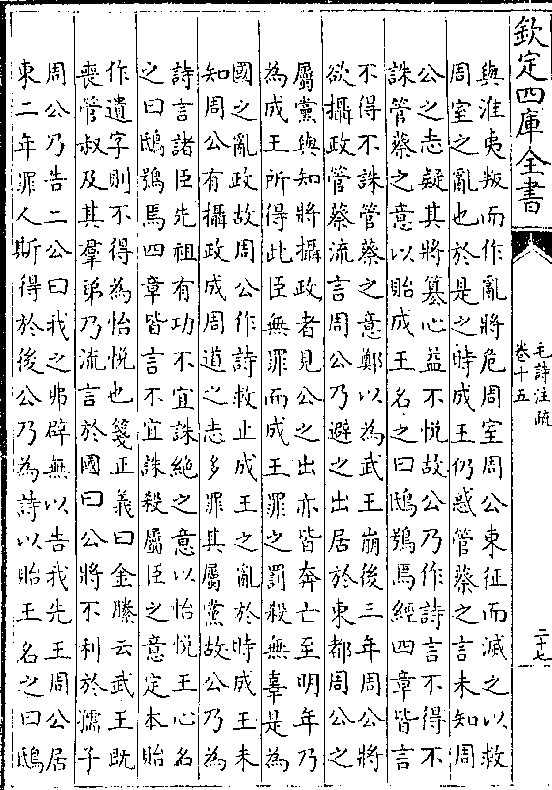 欽定四庫全書
毛詩注疏
卷十五
二十七
與淮夷叛而作亂將危周室周公東征而滅之以救
周室之亂也於是之時成王仍惑管蔡之言未知周
公之志疑其將簒心益不悅故公乃作詩言不得不
誅管蔡之意以貽成王名之曰鴟鴞焉經四章皆言
不得不誅管蔡之意鄭以為武王崩後三年周公將
欲攝政管蔡流言周公乃避之出居於東都周公之
屬黨與知將攝政者見公之出亦皆奔亡至明年乃
為成王所得此臣無罪而成王罪之罰殺無辜是為
國之亂政故周公作詩救止成王之亂於時成王未
知周公有攝政成周道之志多罪其屬黨故公乃為
詩言諸臣先祖有功不宜誅絕之意以怡悅王心名
之曰鴟鴞焉四章皆言不宜誅殺屬臣之意定本貽
作遺字則不得為怡悅也箋正義曰金縢云武王既
喪管叔及其羣弟乃流言於國曰公將不利於孺子
周公乃告二公曰我之弗辟無以告我先王周公居
東二年罪人斯得於後公乃為詩以貽王名之曰鴟